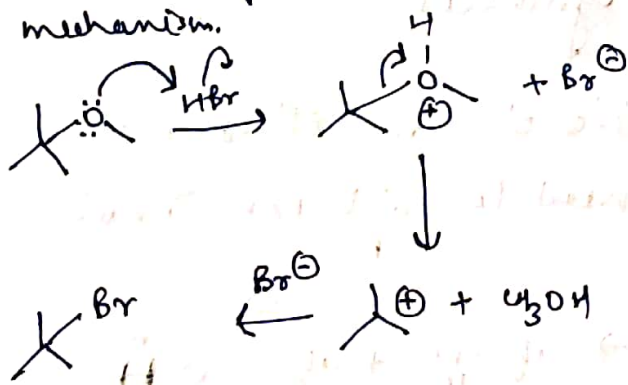 mechanism.
H
Ö: HBr O + Br⊖
⊕
Br⊖
Br ⊕ + CH3OH